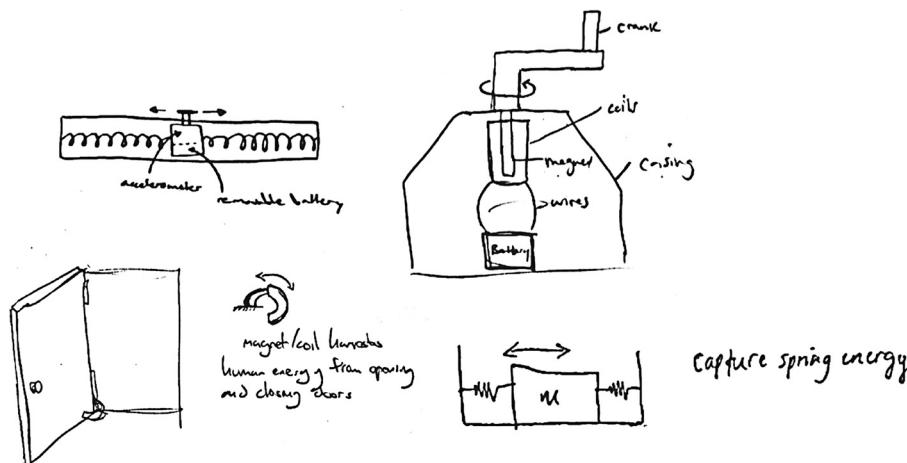 crank
coils
magnet
casing
wires
Battery
accelerometer
removable battery
magnet/coil harvests
human energy from opening
and closing doors
m
Capture spring energy